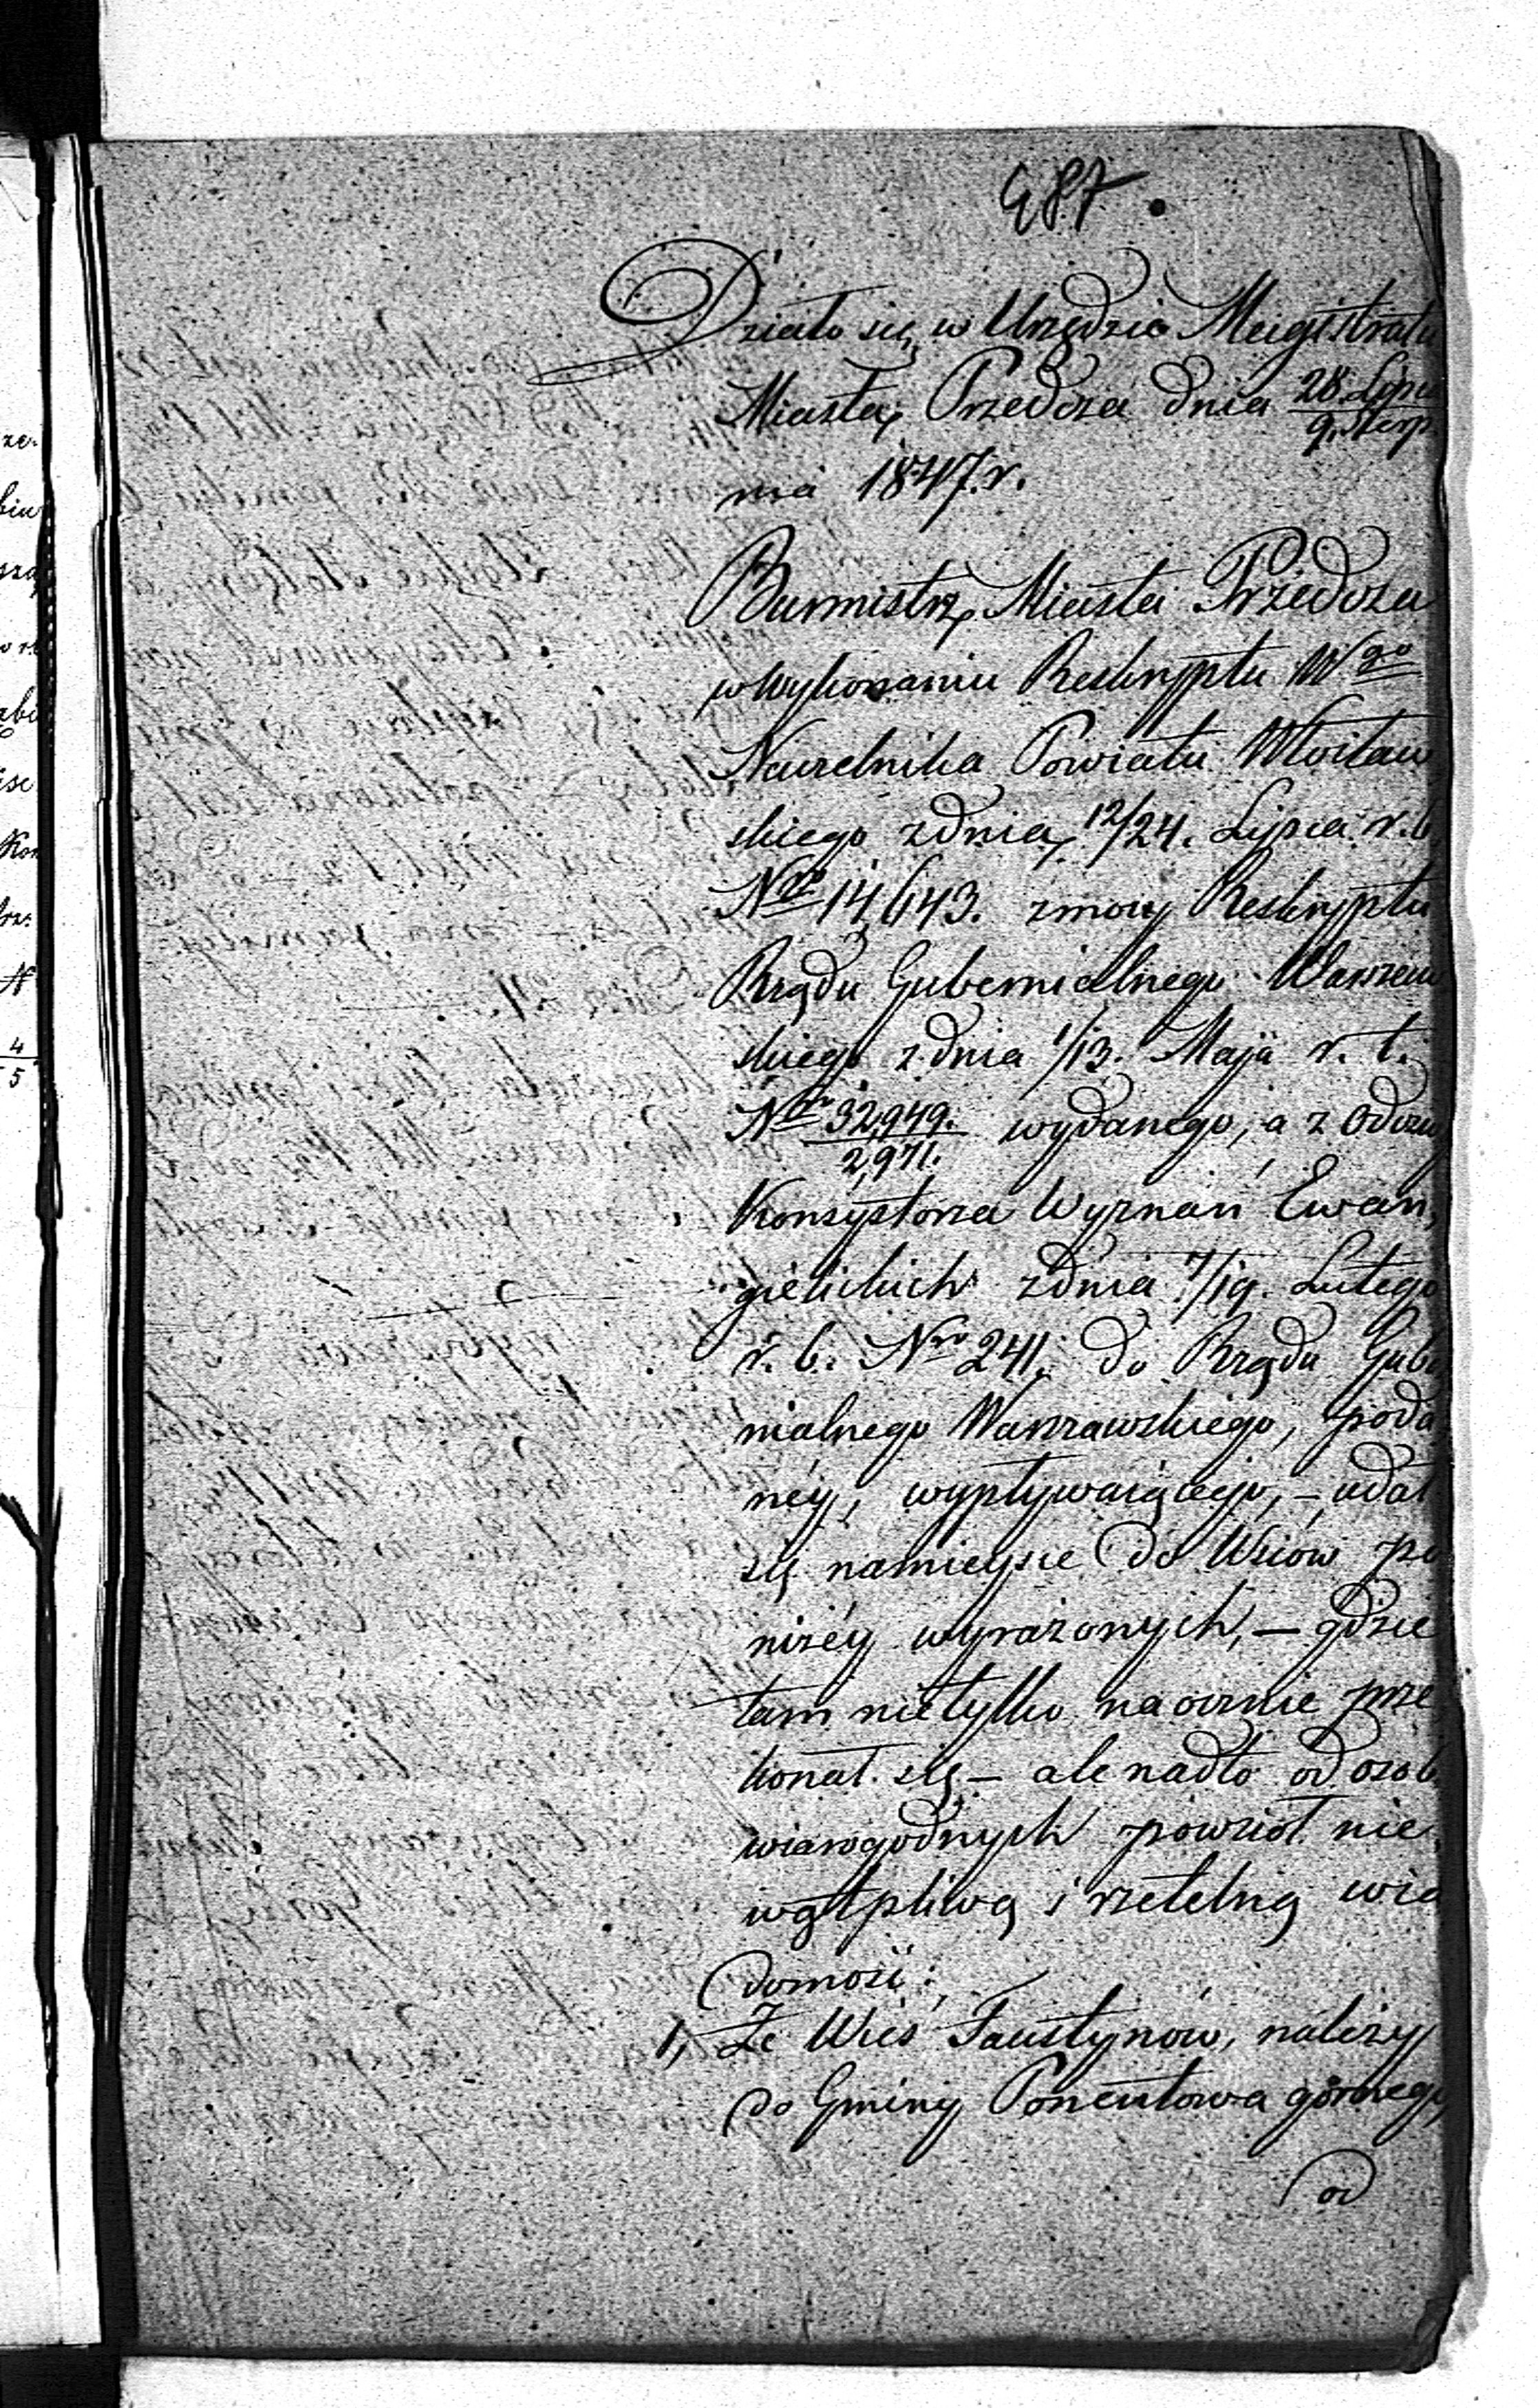 487.
Działo się w Urzędzie Magistratu
Miasta Przedcza dnia 28 Lipca / 9. Sierp
nia 1847. r.
Burmistrz Miasta Przedcza
w wykonaniu Reskryptu Wgo
Naczelnika Powiatu Włocław
skiego z dnia 12/24. Lipca r. b.
Nro 14,643. z mocy Reskryptu
Rządu Gubernialnego Warszaw
skiego z dnia 1/13. Maja r. t.
Nro 32,949. / 2,971. wydanego, a z Odezw
Konsystorza Wyznań Ewan,
gielickich z dnia 7/19. Lutego
r. b. Nro 241. do Rządu Gube
nialnego Warszawskiego, poda
néy, wypływaiącego, – udał
się na mieysce do Wsiów po
niżéy wyrażonych, – gdzie
tam nietylko naocznie prze
konał się – ale nadto od osob
wiarogodnych powziął nie
wątpliwą i rzetelną wia
domość:
1, Że Wieś Faustynów, należy
do Gminy Ponentowa górnego
od